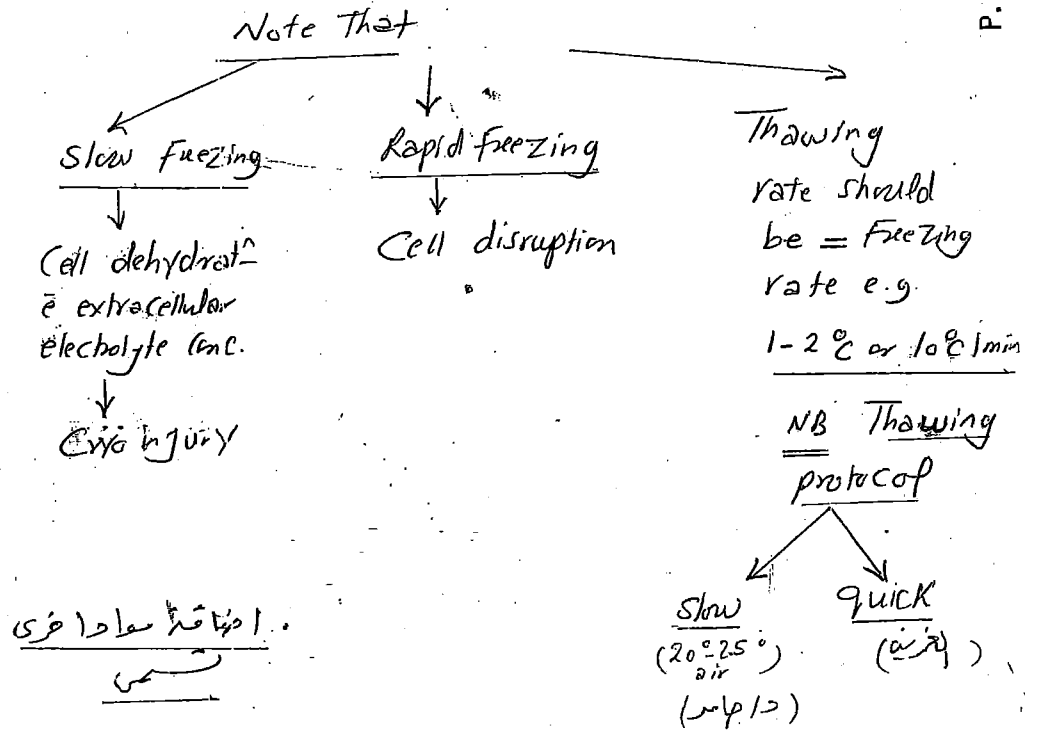 P.
Note That
Slow Freezing
Cell dehydrat^n
ē extracellular
electrolyte Conc.
Cryo injury
Rapid Freezing
Cell disruption
Thawing
rate should
be = Freezing
rate e.g.
1-2 °C or 10 °C/min
NB Thawing
protocol
Slow
(20°-25°
air)
quick
اضافة مواد اخرى
تسمى